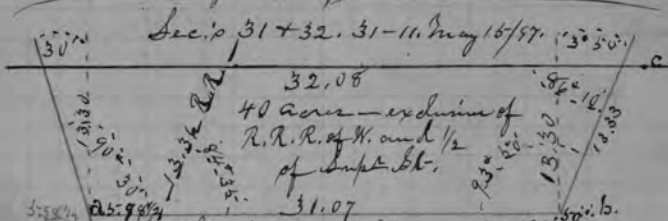 Sec's 31 + 32. 31-11. May 15/97.
30'
3° 50'
c
32.08
86° 10'
40 acres — exclusive of
R.R.R. of W. and 1/2
of Supt St.
13.30
90° 30'
13.33
R.R.
93° 50'
13.30
13.33
a
31.07
50'
b.